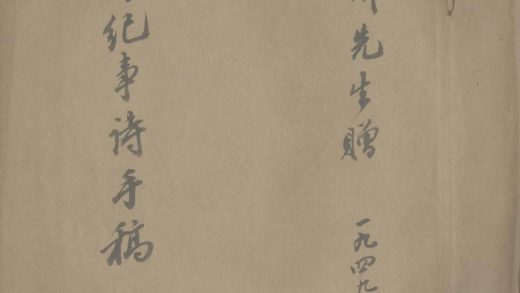 先生贈 一九四九
紀事诗手稿